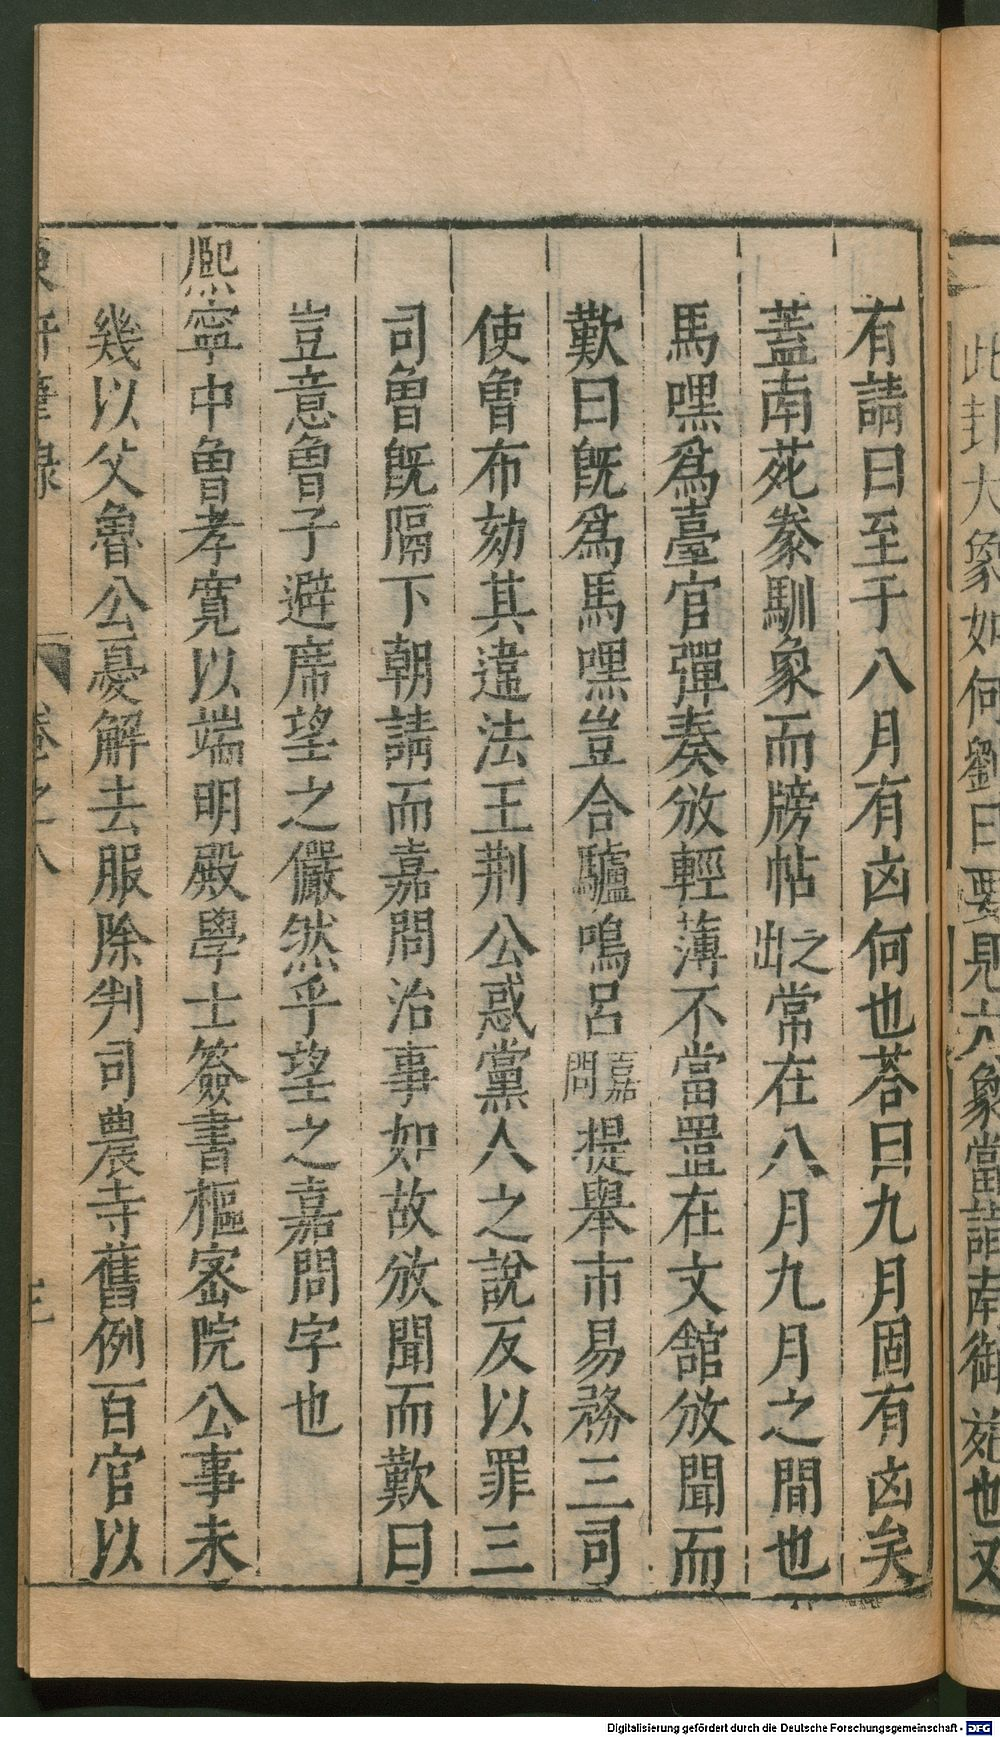 此封大象如何劉曰要見大象當詣南御苑也又
有請曰至于八月有凶何也荅曰九月固有凶矣
蓋南苑豢馴象而牓帖之出常在八月九月之間也
馬嘿爲臺官彈奏攽輕薄不當置在文舘攽聞而
歎曰旣爲馬嘿豈合驢鳴呂嘉問提舉市易務三司
使曾布劾其違法王荆公惑黨人之說反以罪三
司曾旣隔下朝請而嘉問治事如故攽聞而歎曰
豈意曾子避席望之儼然乎望之嘉問字也
熈寧中曾孝寬以端明殿學士簽書樞密院公事未
幾以父魯公憂解去服除判司農寺舊例百官以
東軒筆録 卷之十八
Digitalisierung gefördert durch die Deutsche Forschungsgemeinschaft - DFG